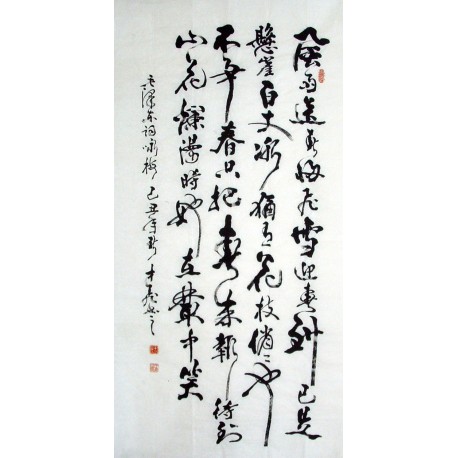 風雨送春归飛雪迎春到已是
懸崖百丈冰猶有花枝俏〻也
不争春只把春来報待到
山花爛漫時她在叢中笑
毛澤东詞咏梅己丑年